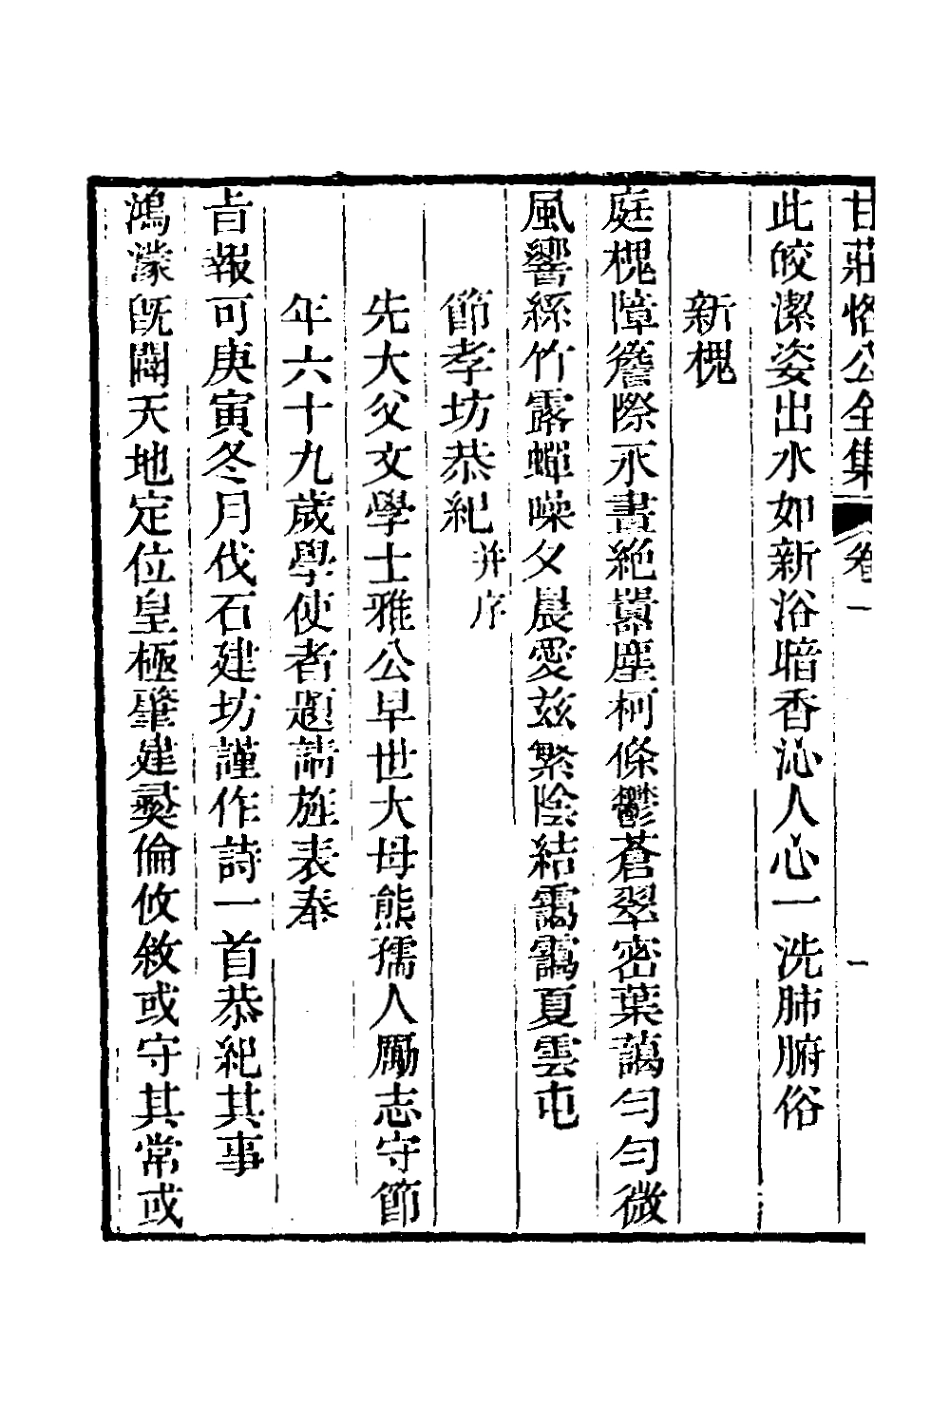 甘莊恪公全集 卷一 一
此皎潔姿出水如新浴暗香沁人心一洗肺腑俗
新槐
庭槐障簷際永晝絶嚣塵柯條鬱蒼翠密葉藹勻勻微
風響絲竹露蟬噪夕晨愛茲繁陰結靄靄夏雲屯
節孝坊恭紀并序
先大父文學士雅公早世大母熊孺人勵志守節
年六十九歲學使者題請旌表奉
旨報可庚寅冬月伐石建坊謹作詩一首恭紀其事
鴻濛旣闢天地定位皇極肈建彝倫攸敘或守其常或